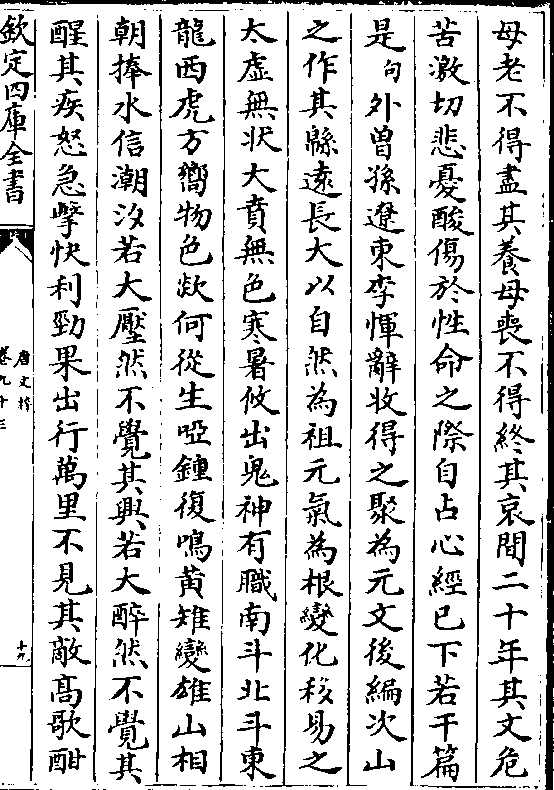 母老不得盡其養母喪不得終其哀間二十年其文危
苦激切悲憂酸傷於性命之際自占心經已下若干篇
是句外曾孫遼東李惲辭收得之聚為元文後編次山
之作其緜逺長大以自然為祖元氣為根變化移易之
太虛無狀大賁無色寒暑攸出鬼神有職南斗北斗東
龍西虎方嚮物色歘何從生啞鍾復鳴黄雉變雄山相
朝捧水信潮汐若大壓然不覺其興若大醉然不覺其
醒其疾怒急擊快利勁果出行萬里不見其敵髙歌酣
欽定四庫全書
唐文粹
卷九十三
十九